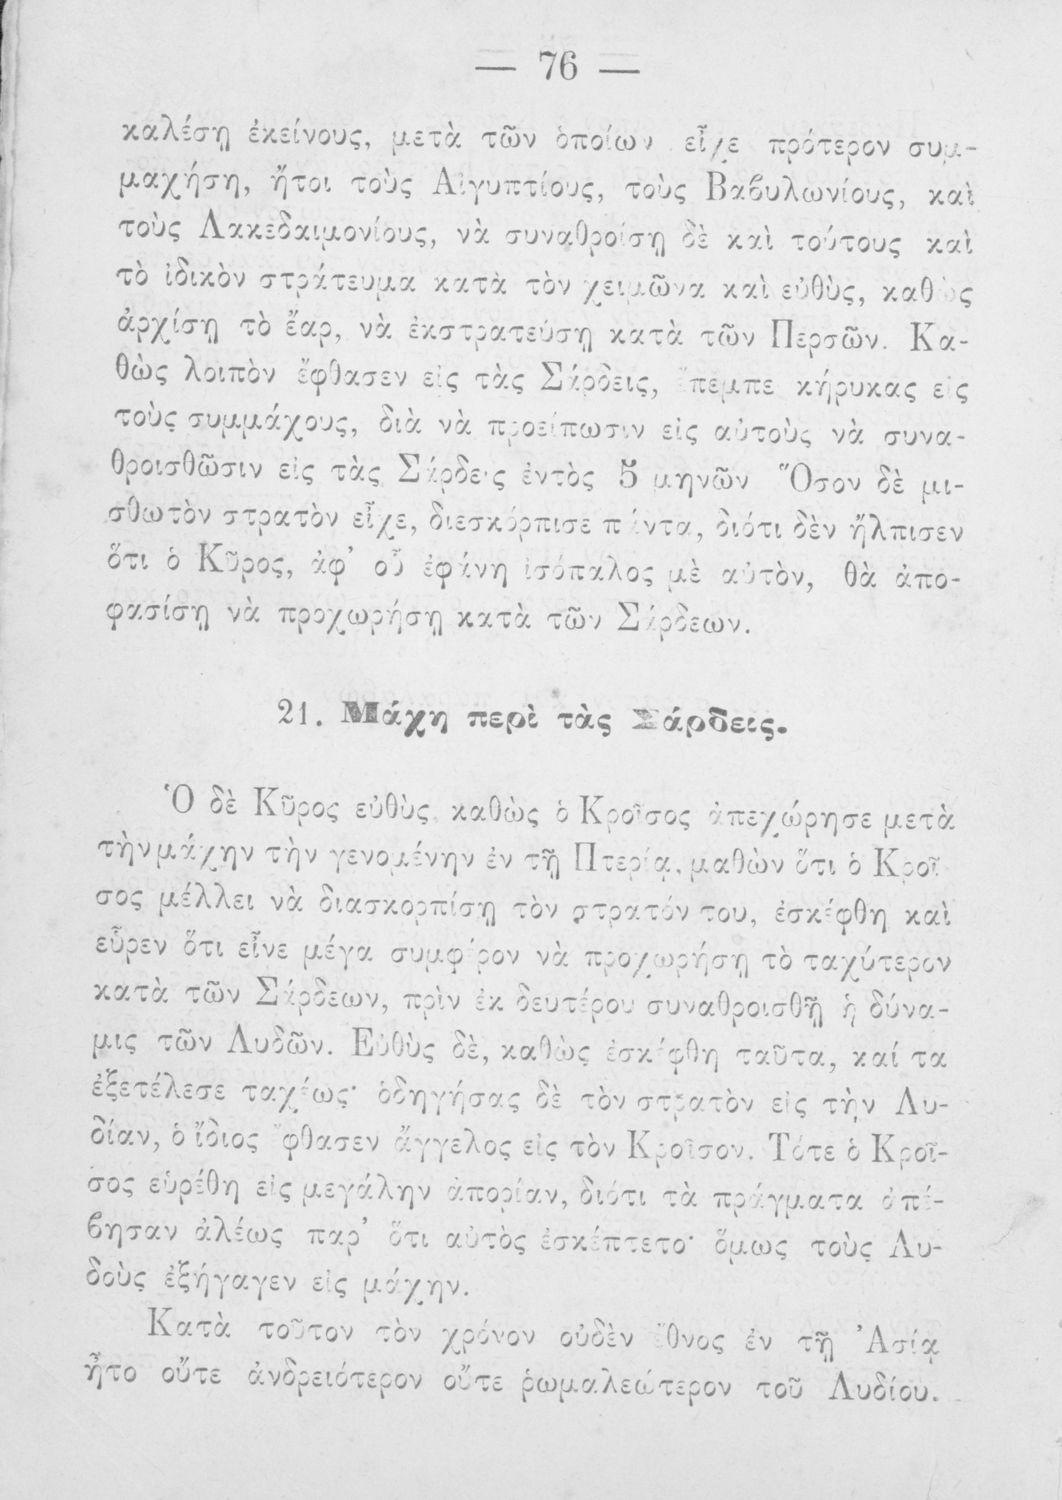 — 76 —
καλέσῃ ἐκείνους, μετὰ τῶν ὁποίων εἶχε πρότερον συμ-
μαχήση, ἤτοι τοὺς Αἰγυπτίους, τοὺς Βαβυλωνίους, καὶ
τοὺς Λακεδαιμονίους, νὰ συναθροίσῃ δὲ καὶ τούτους καὶ
τὸ ἰδικὸν στράτευμα κατὰ τὸν χειμῶνα καὶ εὐθὺς, καθὼς
ἀρχίσῃ τὸ ἔαρ, νὰ ἐκστρατεύσῃ κατὰ τῶν Περσῶν. Κα-
θὼς λοιπὸν ἔφθασεν εἰς τὰς Σάρδεις, ἔπεμπε κήρυκας εἰς
τοὺς συμμάχους, διὰ νὰ προείπωσιν εἰς αὐτοὺς νὰ συνα-
θροισθῶσιν εἰς τὰς Σάρδεις ἐντὸς 5 μηνῶν Ὅσον δὲ μι-
σθωτὸν στρατὸν εἶχε, διεσκόρπισε πάντα, διότι δὲν ἤλπισεν
ὅτι ὁ Κῦρος, ἀφ' οὗ ἐφάνη ἰσόπαλος μὲ αὐτὸν, θὰ ἀπο-
φασίσῃ νὰ προχωρήσῃ κατὰ τῶν Σάρδεων.
21. Μάχη περὶ τὰς Σάρδεις.
Ὁ δὲ Κῦρος εὐθὺς, καθὼς ὁ Κροῖσος ἀπεχώρησε μετὰ
τὴν μάχην τὴν γενομένην ἐν τῇ Πτερίᾳ, μαθὼν ὅτι ὁ Κροῖ
σος μέλλει νὰ διασκορπίσῃ τὸν στρατόν του, ἐσκέφθη καὶ
εὗρεν ὅτι εἶνε μέγα συμφέρον νὰ προχωρήσῃ τὸ ταχύτερον
κατὰ τῶν Σάρδεων, πρὶν ἐκ δευτέρου συναθροισθῇ ἡ δύνα-
μις τῶν Λυδῶν. Εὐθὺς δὲ, καθὼς ἐσκέφθη ταῦτα, καί τα
ἐξετέλεσε ταχέως· ὁδηγήσας δὲ τὸν στρατὸν εἰς τὴν Λυ-
δίαν, ὁ ἴδιος ἔφθασεν ἄγγελος εἰς τὸν Κροῖσον. Τότε ὁ Κροῖ-
σος εὑρέθη εἰς μεγάλην ἀπορίαν, διότι τὰ πράγματα ἀπέ-
βησαν ἀλέως παρ' ὅτι αὐτὸς ἐσκέπτετο· ὅμως τοὺς Λυ-
δοὺς ἐξήγαγεν εἰς μάχην.
Κατὰ τοῦτον τὸν χρόνον οὐδὲν ἔθνος ἐν τῇ Ἀσίᾳ
ἦτο οὔτε ἀνδρειότερον οὔτε ῥωμαλεώτερον τοῦ Λυδίου.